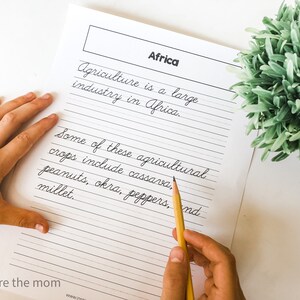 Africa
Agriculture is a large
industry in Africa.
Some of these agricultural
crops include cassava,
peanuts, okra, peppers, and
millet.
re the mom